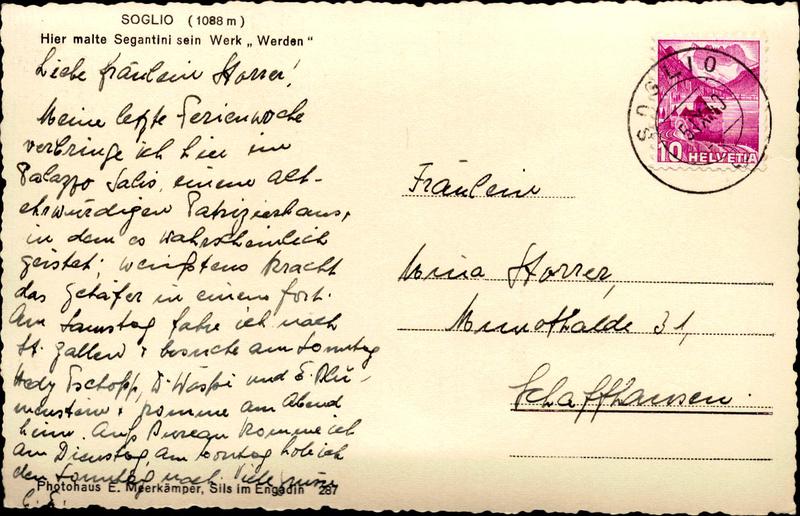 SOGLIO (1088 m)
Hier malte Segantini sein Werk „Werden"
Liebe Fräulein Storrer!
Meine letzte Ferienwoche
verbringe ich hier im
Palazzo Salis, einem alt-
ehrwürdigen Patrizierhaus,
in dem es wahrscheinlich
geistet; wenigstens kracht
das Getäfer in einem fort.
Am Samstag fahre ich nach
St. Gallen & besuche am Sonntag
Hedy Tschopp, D. Wäspi und E. Blu-
menstein & komme am Abend
heim. Aufs Bureau komme ich
am Dienstag, am Montag hole ich
den Sonntag nach. Viele
Photohaus E. Meerkämper, Sils im Engadin 287
SOGLIO
10 HELVETIA
Fräulein
Mina Storrer,
Munothalde 31,
Schaffhausen.